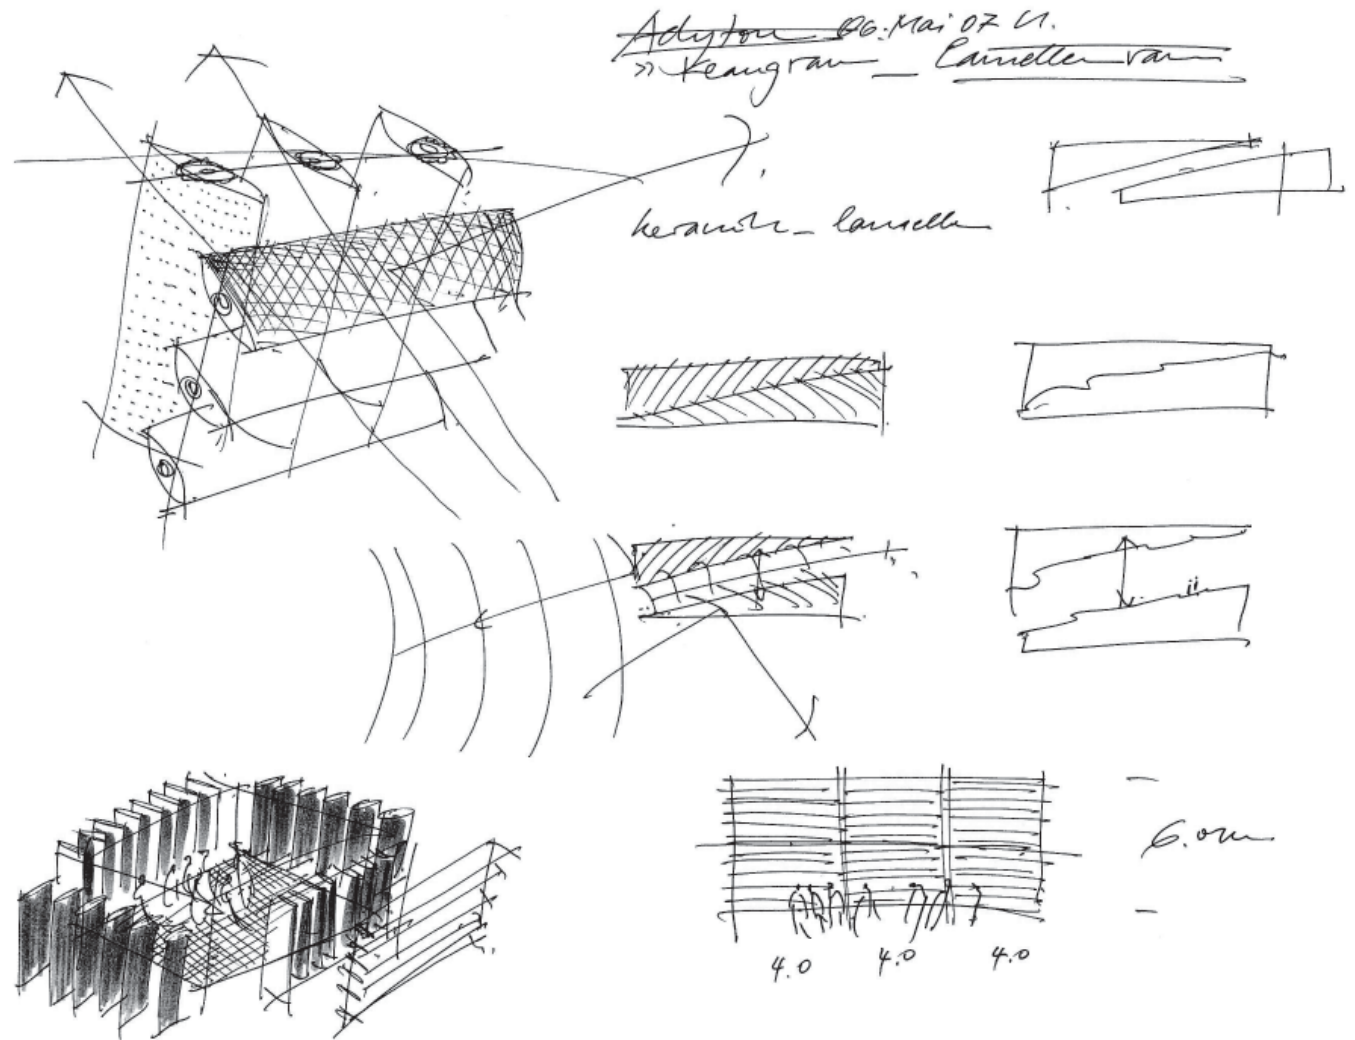 Adyton 06. Mai 07 U.
» Keangram _ Lamellenraum
keramik _ lamellen
6.0m
4.0 4.0 4.0